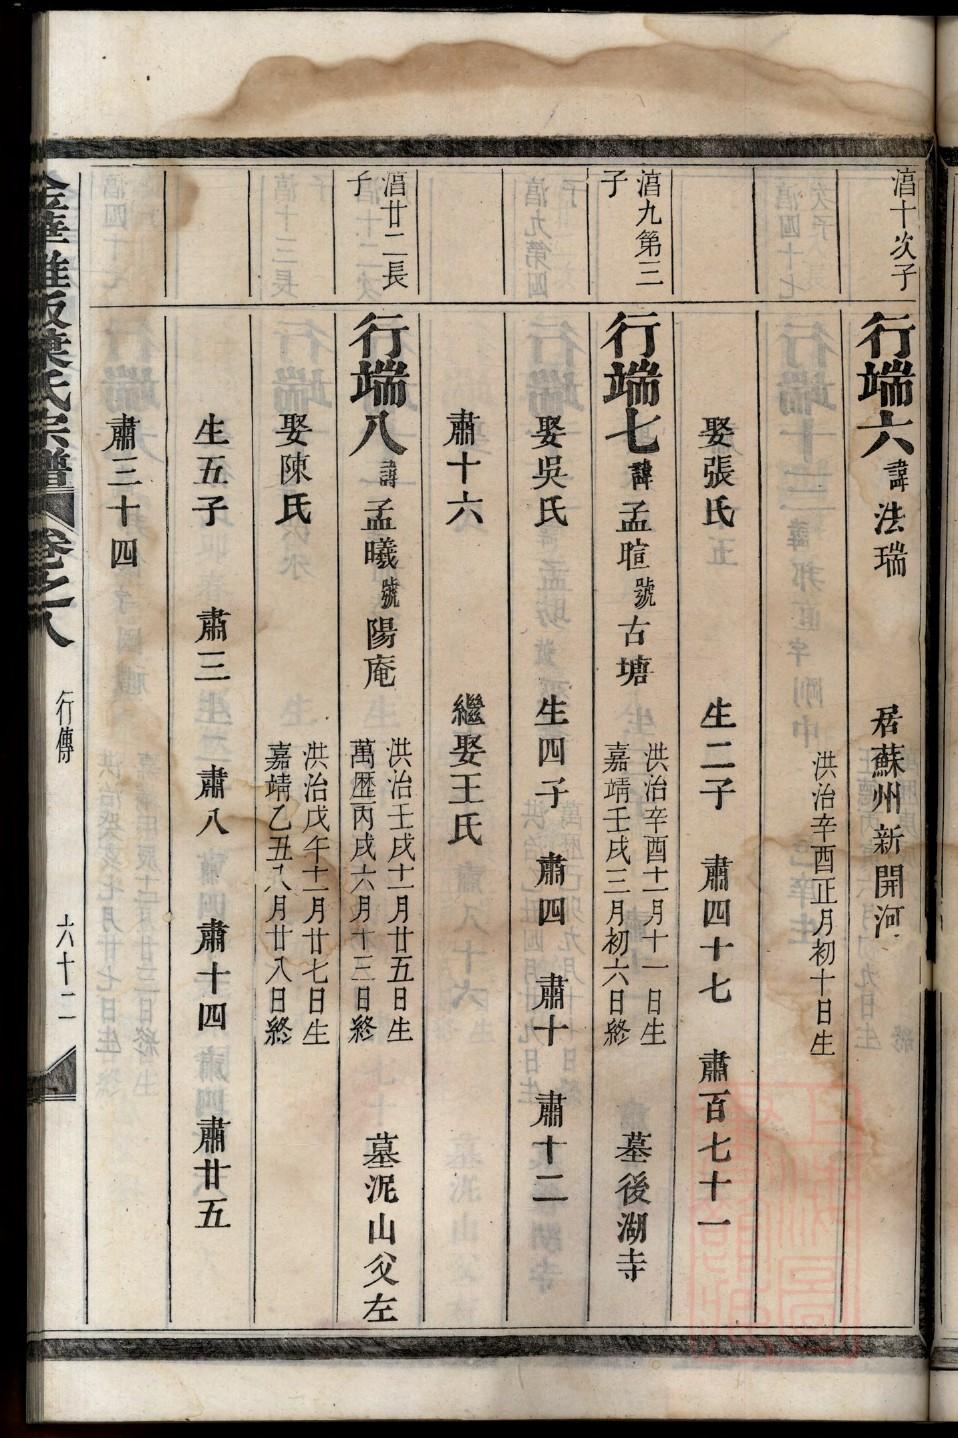 湻十次子
行端六 諱法瑞 居蘇州新開河
洪治辛酉正月初十日生
娶張氏 生二子 肅四十七 肅百七十一
湻九第三子
行端七 諱孟暄 號古塘 洪治辛酉十一月十一日生 嘉靖壬戌三月初六日終 墓後湖寺
娶吳氏 生四子 肅四 肅十 肅十二
肅十六 繼娶王氏
湻廿二長子
行端八 諱孟曦 號陽庵 洪治壬戌十一月廿五日生 萬歷丙戌六月十三日終 墓泥山父左
娶陳氏 洪治戊午十二月廿七日生 嘉靖乙丑八月廿八日終
生五子 肅三 肅八 肅十四 肅廿五
肅三十四
氏宗譜 卷之八 行傳 六十二